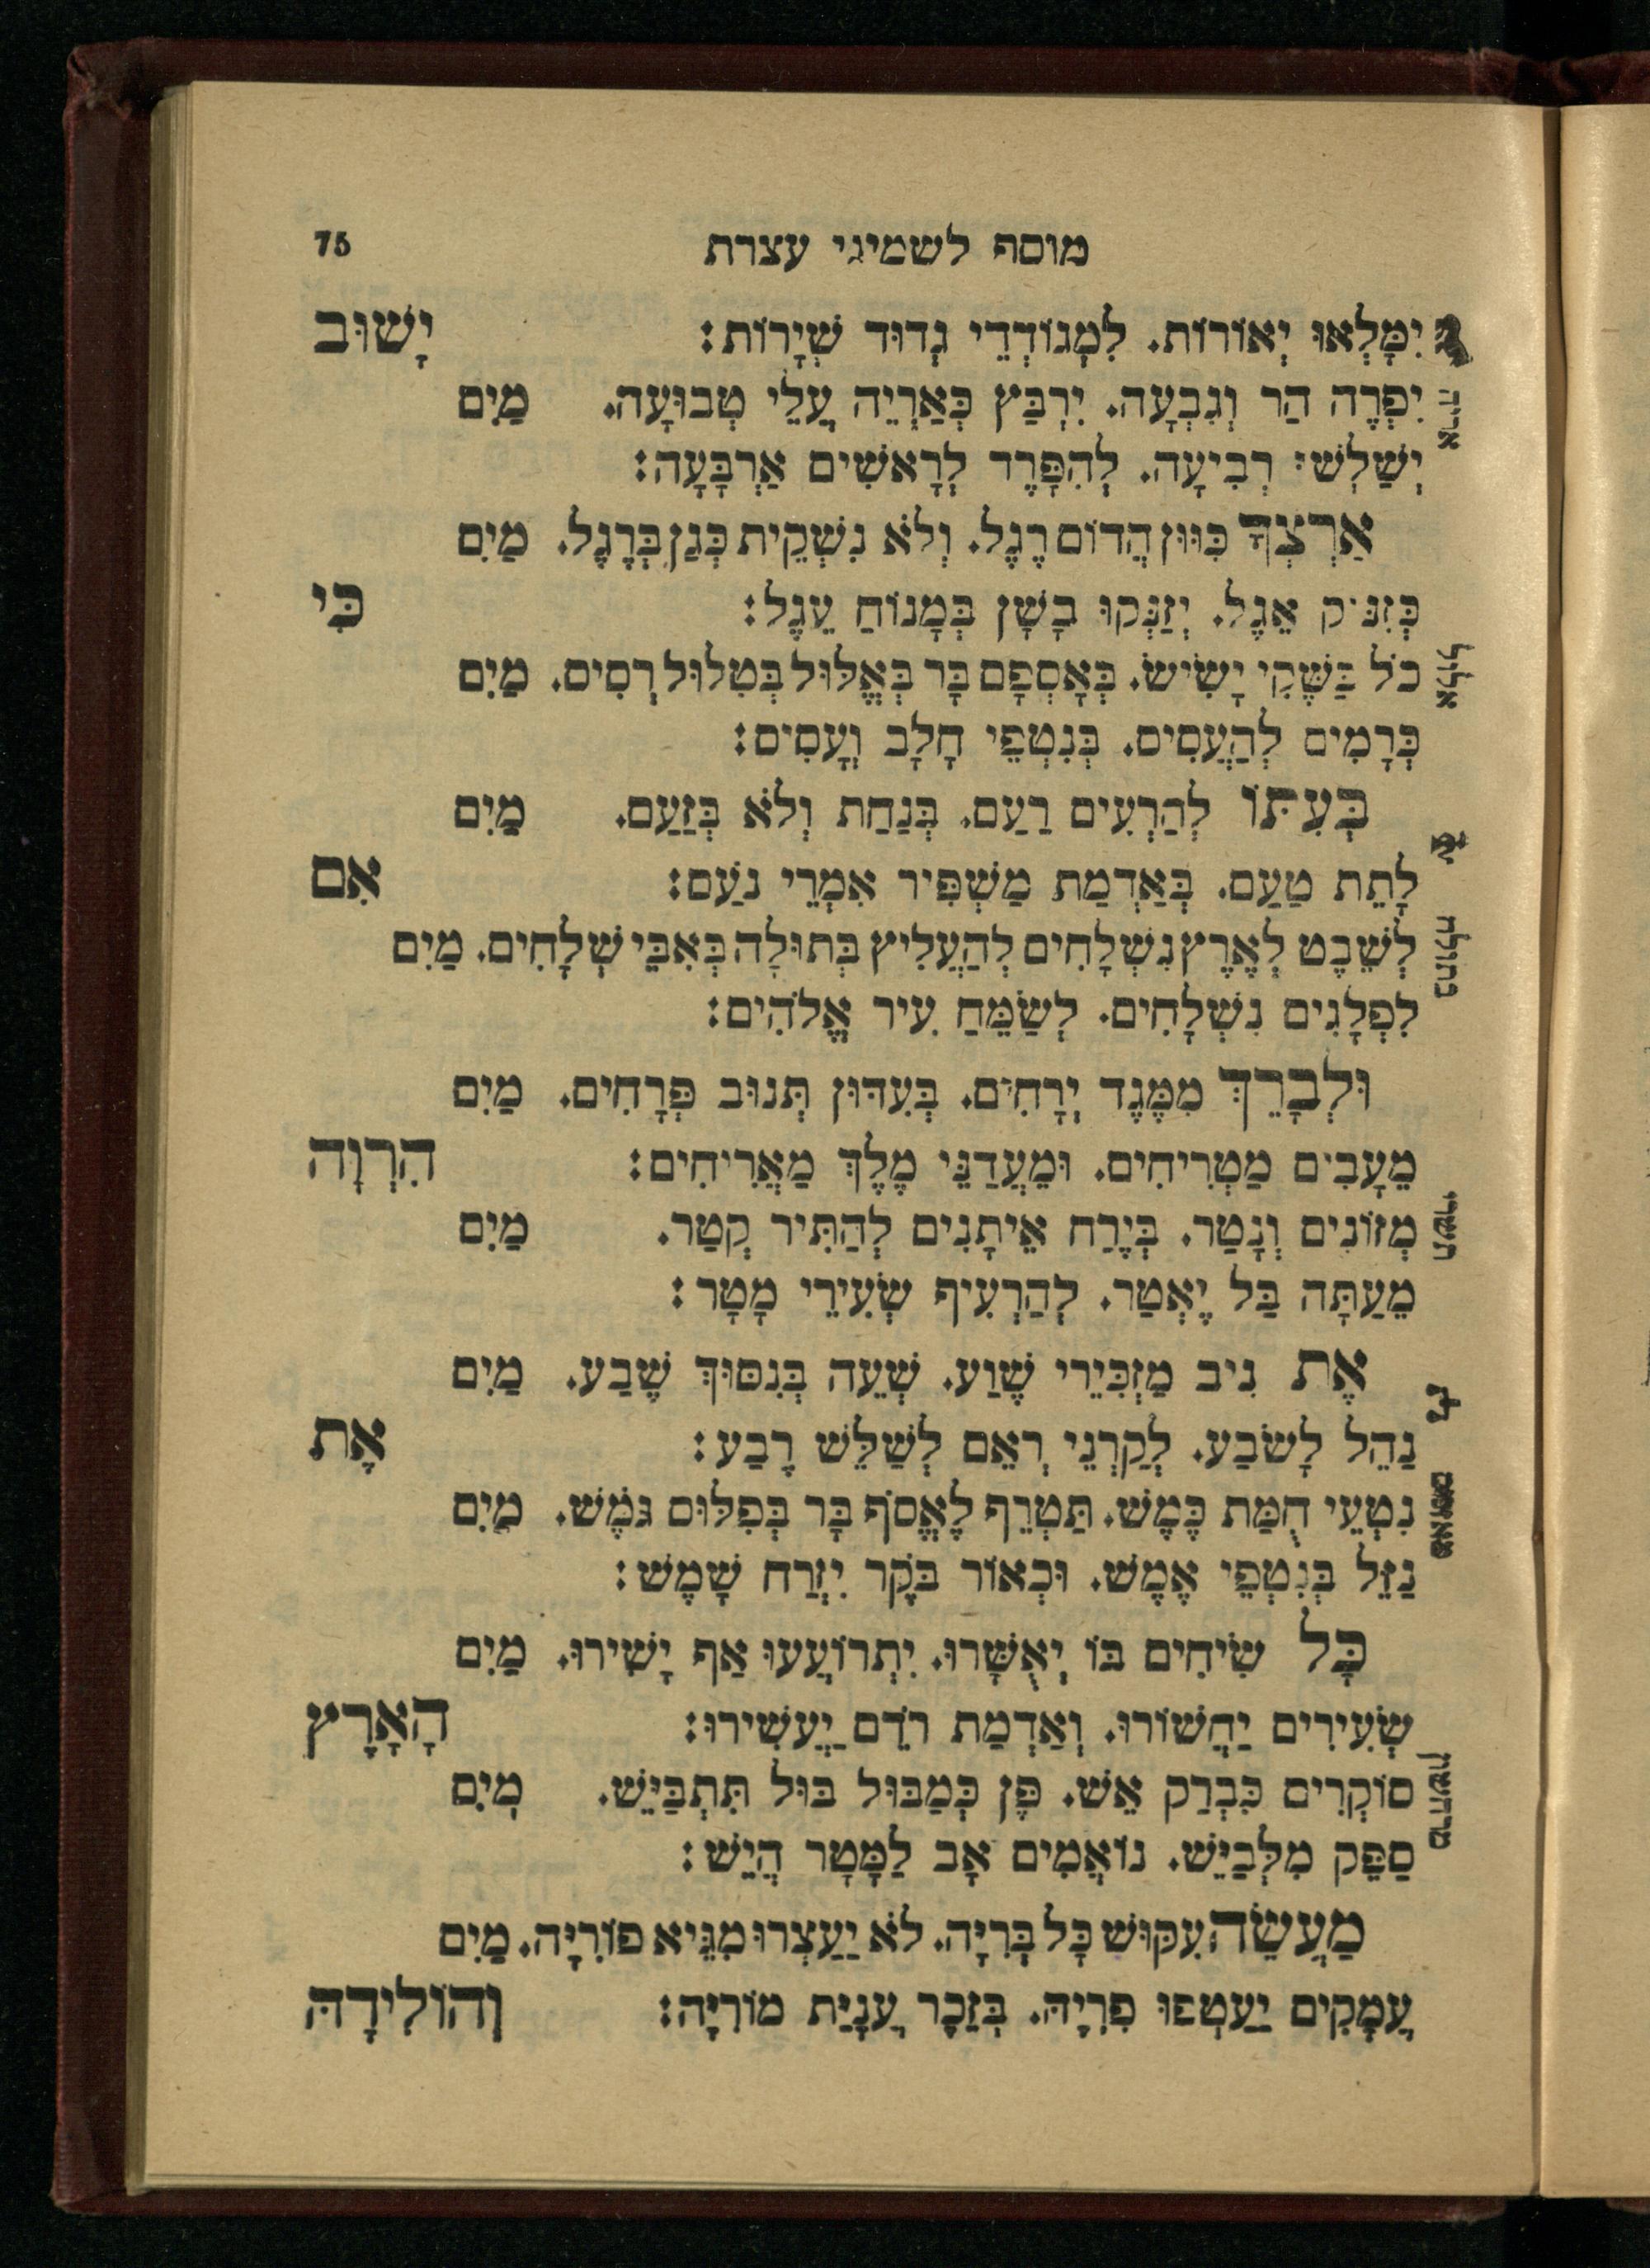 מוסף לשמיני עצרת 75
יִמָּלְאוּ יְאוֹרוֹת. לִמְגוֹדְדֵי גְדוּד שְׁיָרוֹת: יָשׁוּב
אריה
יִפְרֶה הַר וְגִבְעָה. יִרְבַּץ כְּאַרְיֵה עֲלֵי טְבוּעָה. מַיִם
יְשַׁלֵּשׁ רְבִיעָה. לְהִפָּרֶד לְרָאשִׁים אַרְבָּעָה:
אַרְצְךָ כִּוּוּן הֲדוֹם רֶגֶל. וְלֹא נִשְׁקֵית כְּגַן בְּרֶגֶל. מַיִם
כְּזִנּוּק אֵגֶל. יְזַנְּקוּ בָשָׁן בְּמָנוֹחַ עֵגֶל: כִּי
אלול
כֹל בַּשֶּׁקִי יָשִׂישׂ. בְּאָסְפָם בָּר בְּאֱלוּל בְּטִלוּל רְסִים. מַיִם
כְּרָמִים לְהַעֲסִים. בְּנִטְפֵי חָלָב וְעָסִים:
בְּעִתּוֹ לְהַרְעִים רַעַם. בְּנַחַת וְלֹא בְּזַעַם. מַיִם
לָתֵת טַעַם. בְּאַדְמַת מַשְׁפִּיר אִמְרֵי נֹעַם: אִם
בתולה
לְשֵׁבֶט לְאֶרֶץ נִשְׁלָחִים לְהַעֲלִיץ בְּתוּלָה בְּאִבֵּי שְׁלָחִים. מַיִם
לִפְלָגִים נִשְׁלָחִים. לְשַׂמֵּחַ עִיר אֱלֹהִים:
וּלְבָרֵךְ מִמֶּגֶד יְרָחִים. בְּעִדּוּן תְּנוּב פְּרָחִים. מַיִם
מֵעָבִים מַטְרִיחִים. וּמֵעֲדַנֵּי מֶלֶךְ מַאֲרִיחִים: הִרְוָה
תשרי
מְזוֹנִים וְנָטַר. בְּיֶרַח אֵיתָנִים לְהַתִּיר קְטַר. מַיִם
מֵעַתָּה בַּל יֶאְטַר. לְהַרְעִיף שְׂעִירֵי מָטָר:
אֶת נִיב מַזְכִּירֵי שֶׁוַע. שְׁעֵה בְּנִסּוּךְ שֶׁבַע. מַיִם
נַהֵל לָשֹׂבַע. לְקַרְנֵי רְאֵם לְשַׁלֵּשׁ רֶבַע: אֶת
מאזנים
נִטְעֵי חֻמַּת כֶּמֶשׁ. תַּטְרֵף לֶאֱסֹף בָּר בְּפִלּוּס גֹּמֶשׁ. מַיִם
נַזֵּל בְּנִטְפֵי אֶמֶשׁ. וּכְאוֹר בֹּקֶר יִזְרַח שָׁמֶשׁ:
כָּל שִׂיחִים בּוֹ יְאֻשָּׁרוּ. יִתְרוֹעֲעוּ אַף יָשִׁירוּ. מַיִם
שְׂעִירִים יַחֲשׁוֹרוּ. וְאַדְמַת רֹדֵם יַעֲשִׁירוּ: הָאָרֶץ
מרחשון
סוֹקְרִים כִּבְרַק אֵשׁ. פֶּן כְּמַבּוּל בּוּל תִּתְבַּיֵּשׁ. מַיִם
סַפֵּק מִלְּבַיֵּשׁ. נוֹאֲמִים אָב לַמָּטָר הֲיֵשׁ:
מַעֲשֵׂה עִקּוּשׁ כָּל בְּרִיָּה. לֹא יַעַצְרוּ מִגֵּיא פוֹרִיָּה. מַיִם
עֲמָקִים יַעַטְפוּ פִרְיָהּ. בְּזַכָר עֲנָיַת מוֹרִיָּה: וְהוֹלִידָהּ